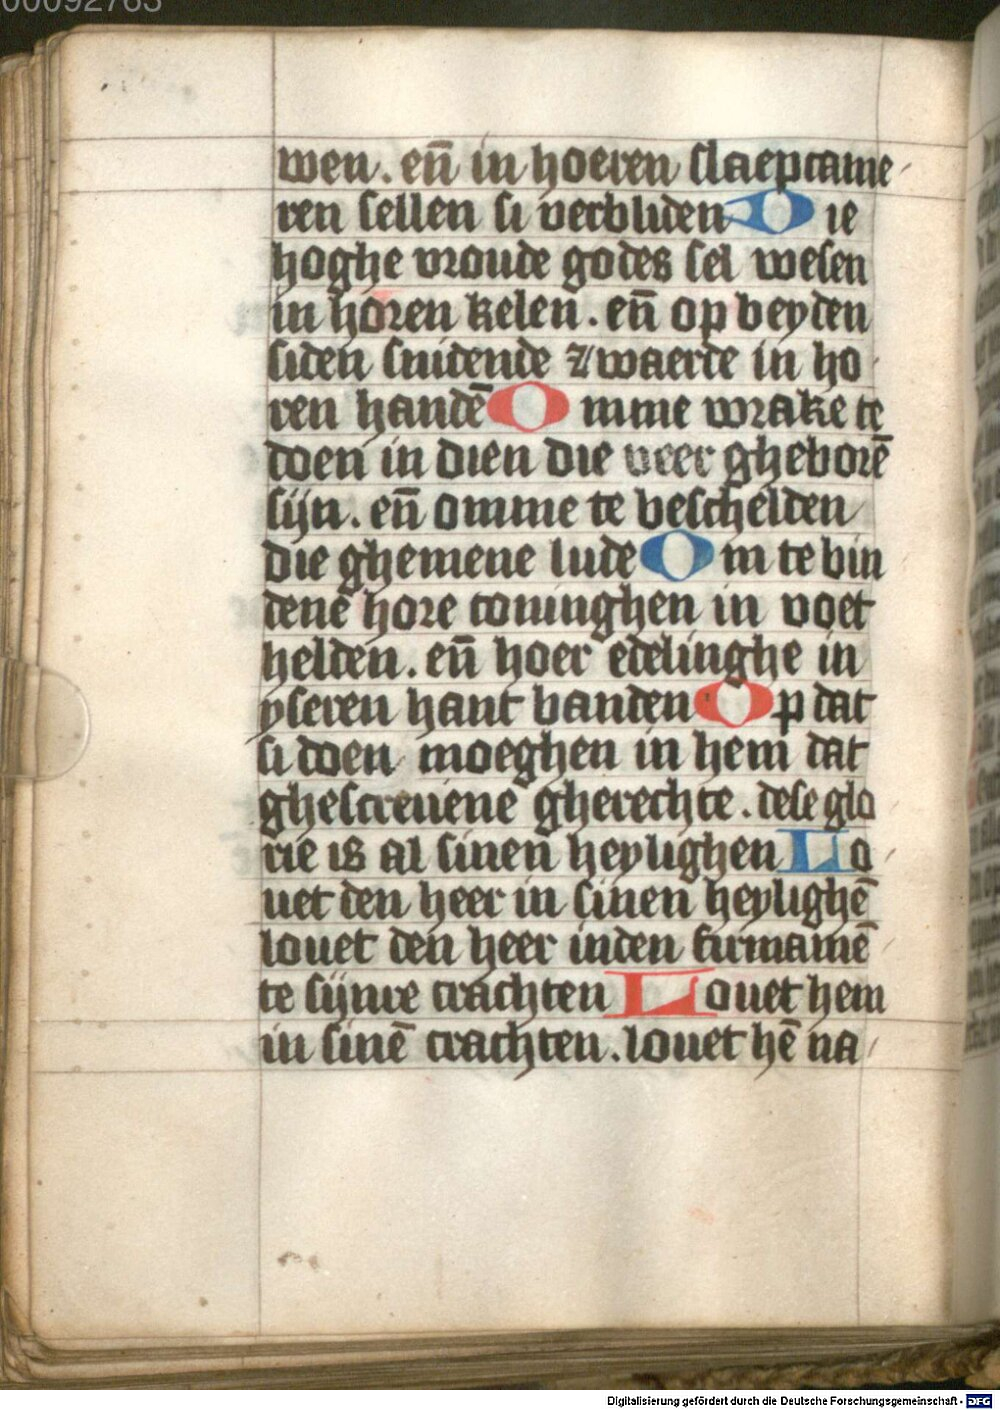 00092763
wen. en̄ in hoeren slaepcame
ren sellen si verbliden Die
hoghe vroude godes sel wesen
in horen kelen. en̄ op beyden
siden snidende zwaerde in ho
ren handē Omme wrake te
doen in dien die veer gheborē
sijn. en̄ omme te beschelden
die ghemene lude Om te bin
dene hore coninghen in voet
helden. en̄ hoer edelinghe in
yseren hant banden Op dat
si doen moeghen in hem dat
ghescreuene gherechte. dese glo
rie is al sinen heylighen Lo
uet den heer in sinen heylighē
louet den heer inden firmamē
te sijnre crachten Louet hem
in sinē crachten. louet hē na
Digitalisierung gefördert durch die Deutsche Forschungsgemeinschaft - DFG